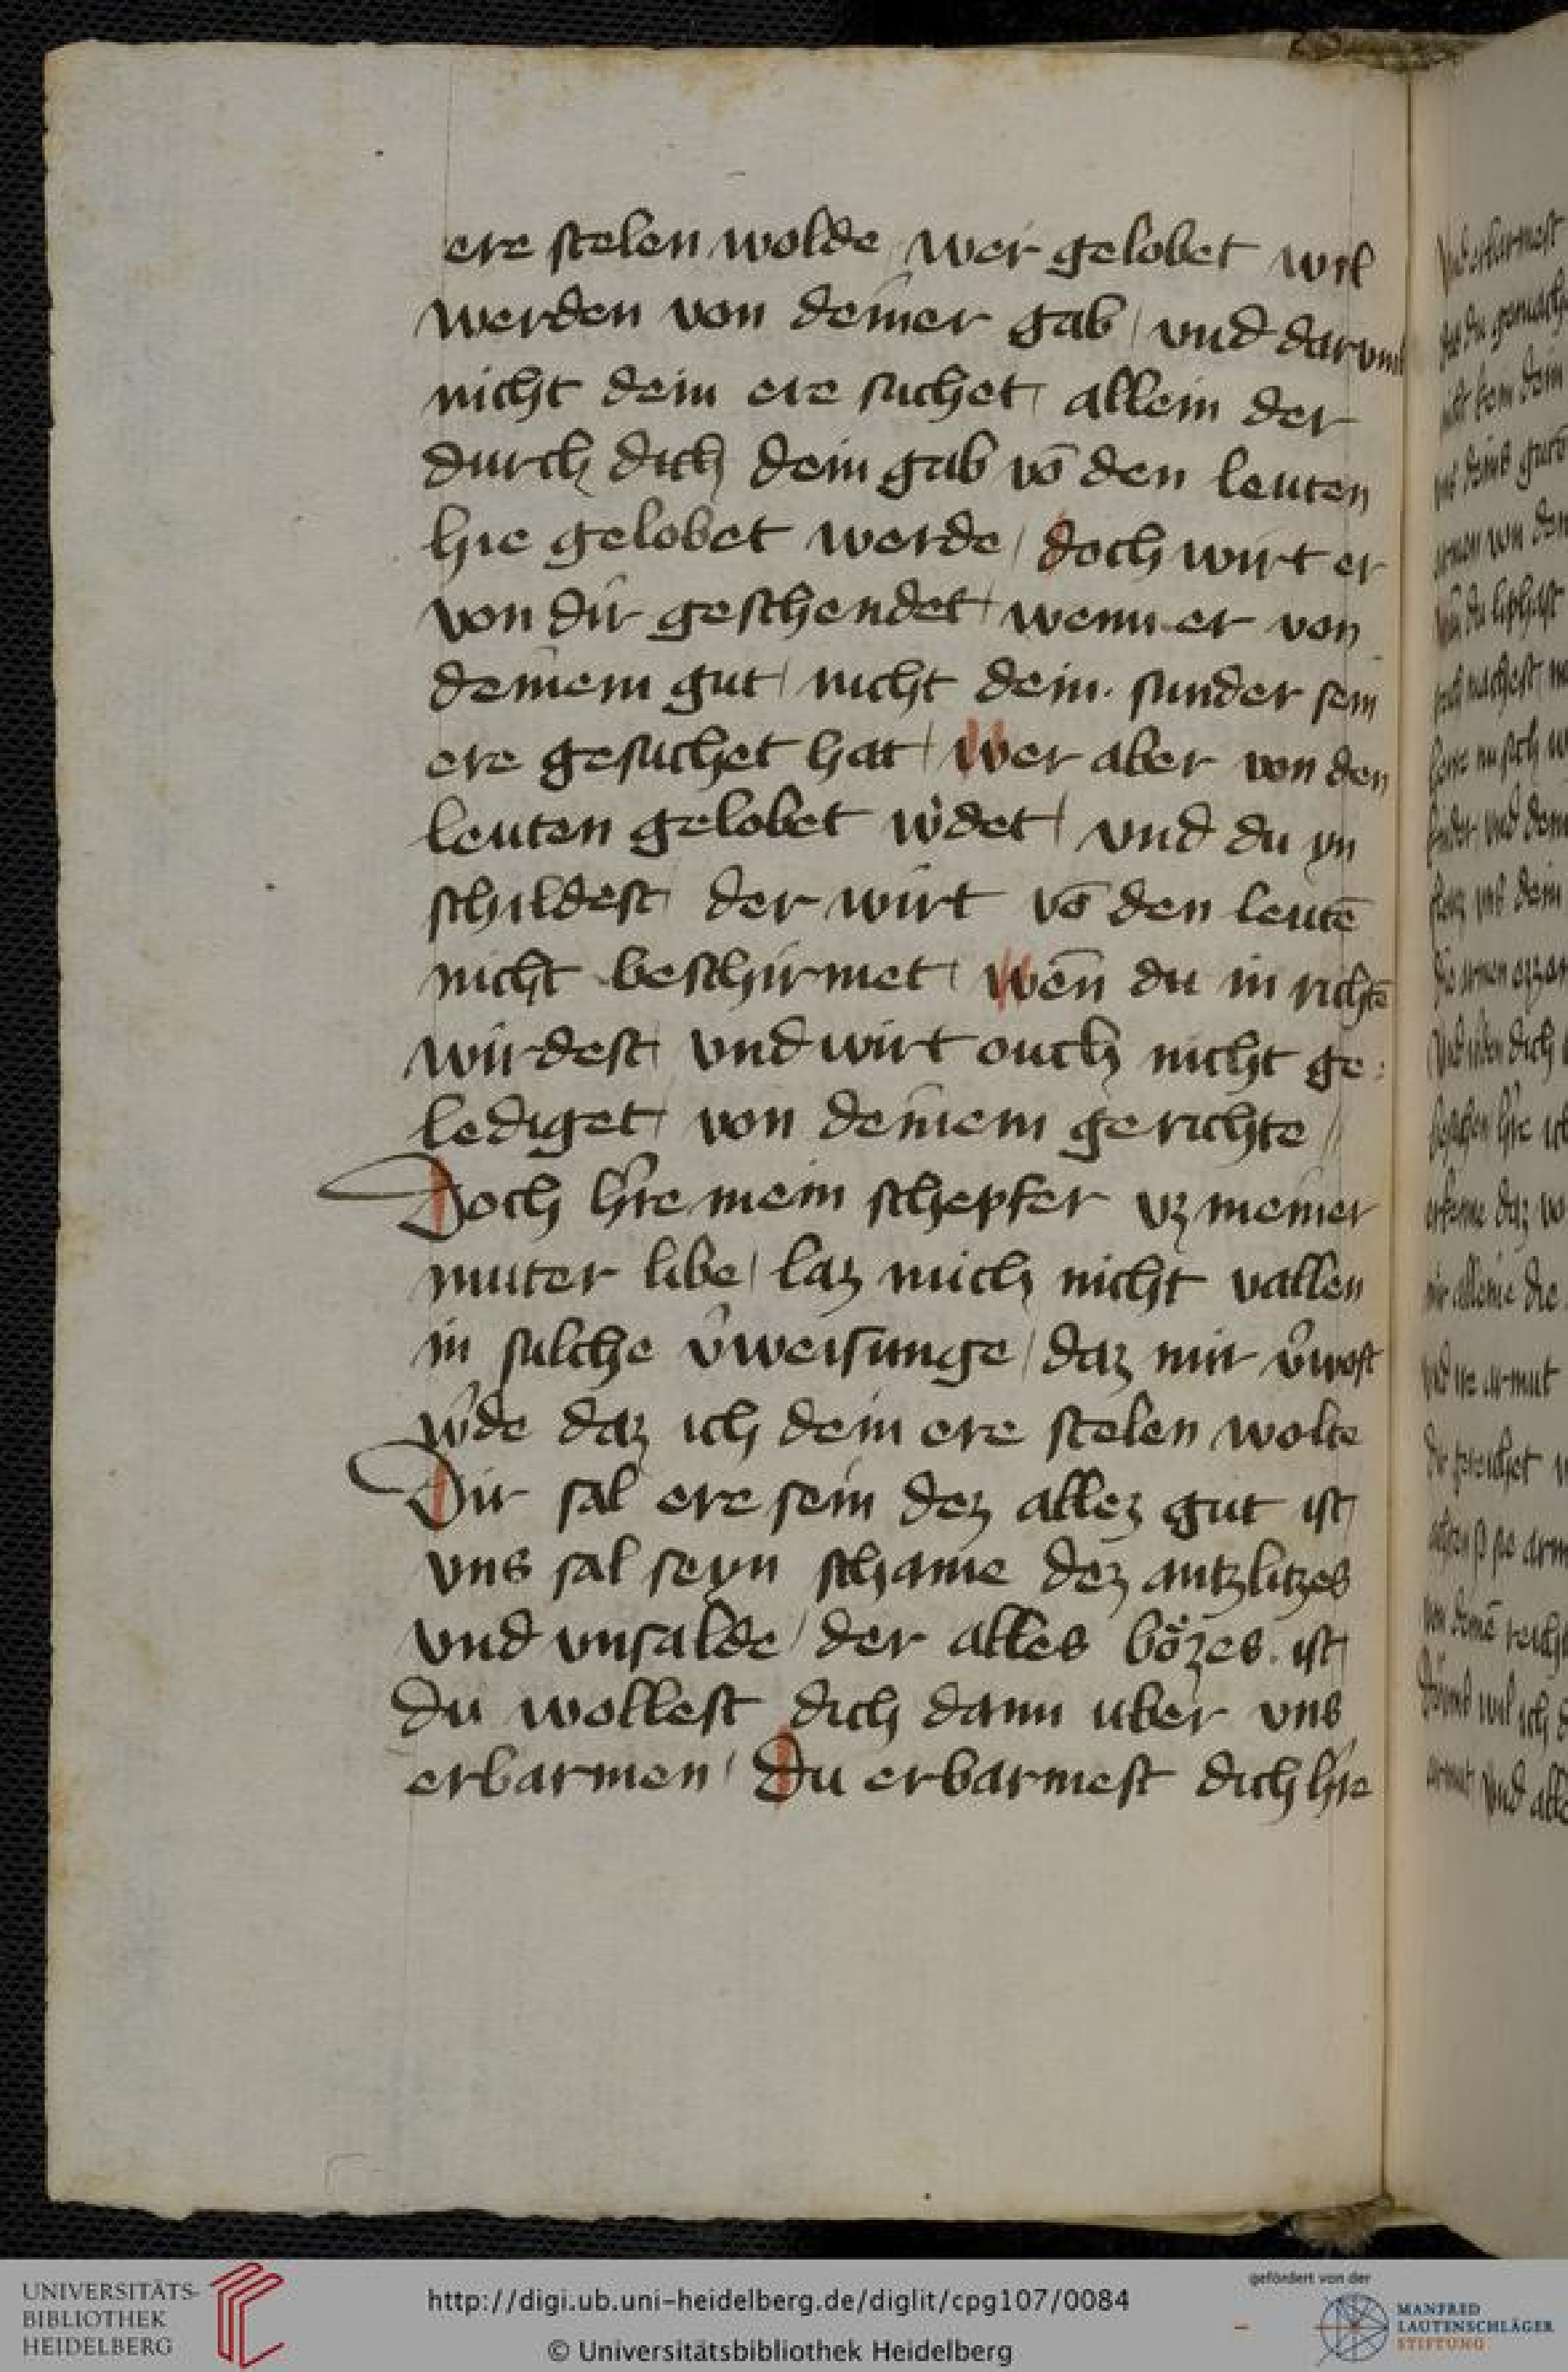 ere stelen wolde wer gelobet wil
werden von deiner gab / vnd darvmb
nicht dein ere suchet / allein der
durch dich dein gab vō den leuten
hie gelobet werde / doch wirt er
von dir geschendet / wenn er von
deinem gut / nicht dein. sunder sein
ere gesuchet hat / wer aber von den
leuten gelobet w'det / vnd du yn
schildest / der wirt vō den leutē
nicht beschirmet / wēn du in richtē
wirdest / vnd wirt ouch nicht ge:
lediget / von deinem gerichte //
Doch h're mein schepfer vz meiner
muter libe / laz mich nicht vallen
in sulche v'weisunge / daz mir v'wost
w'de daz ich dein ere stelen wolte
Dir sal ere sein dez allez gut ist /
vns sal seyn schame dez antzlitzes
vnd vnsalde / der alles bözes. ist /
du wollest dich dann uber vns
erbarmen / Du erbarmest dich h're
UNIVERSITÄTS-
BIBLIOTHEK
HEIDELBERG
http://digi.ub.uni-heidelberg.de/diglit/cpg107/0084
© Universitätsbibliothek Heidelberg
gefördert von der
MANFRED
LAUTENSCHLÄGER
STIFTUNG